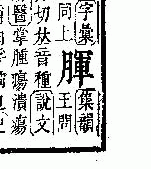 字彙
同上
腪
集韻
王問
切𠀤音種說文
醫掌腫瘍潰瘍